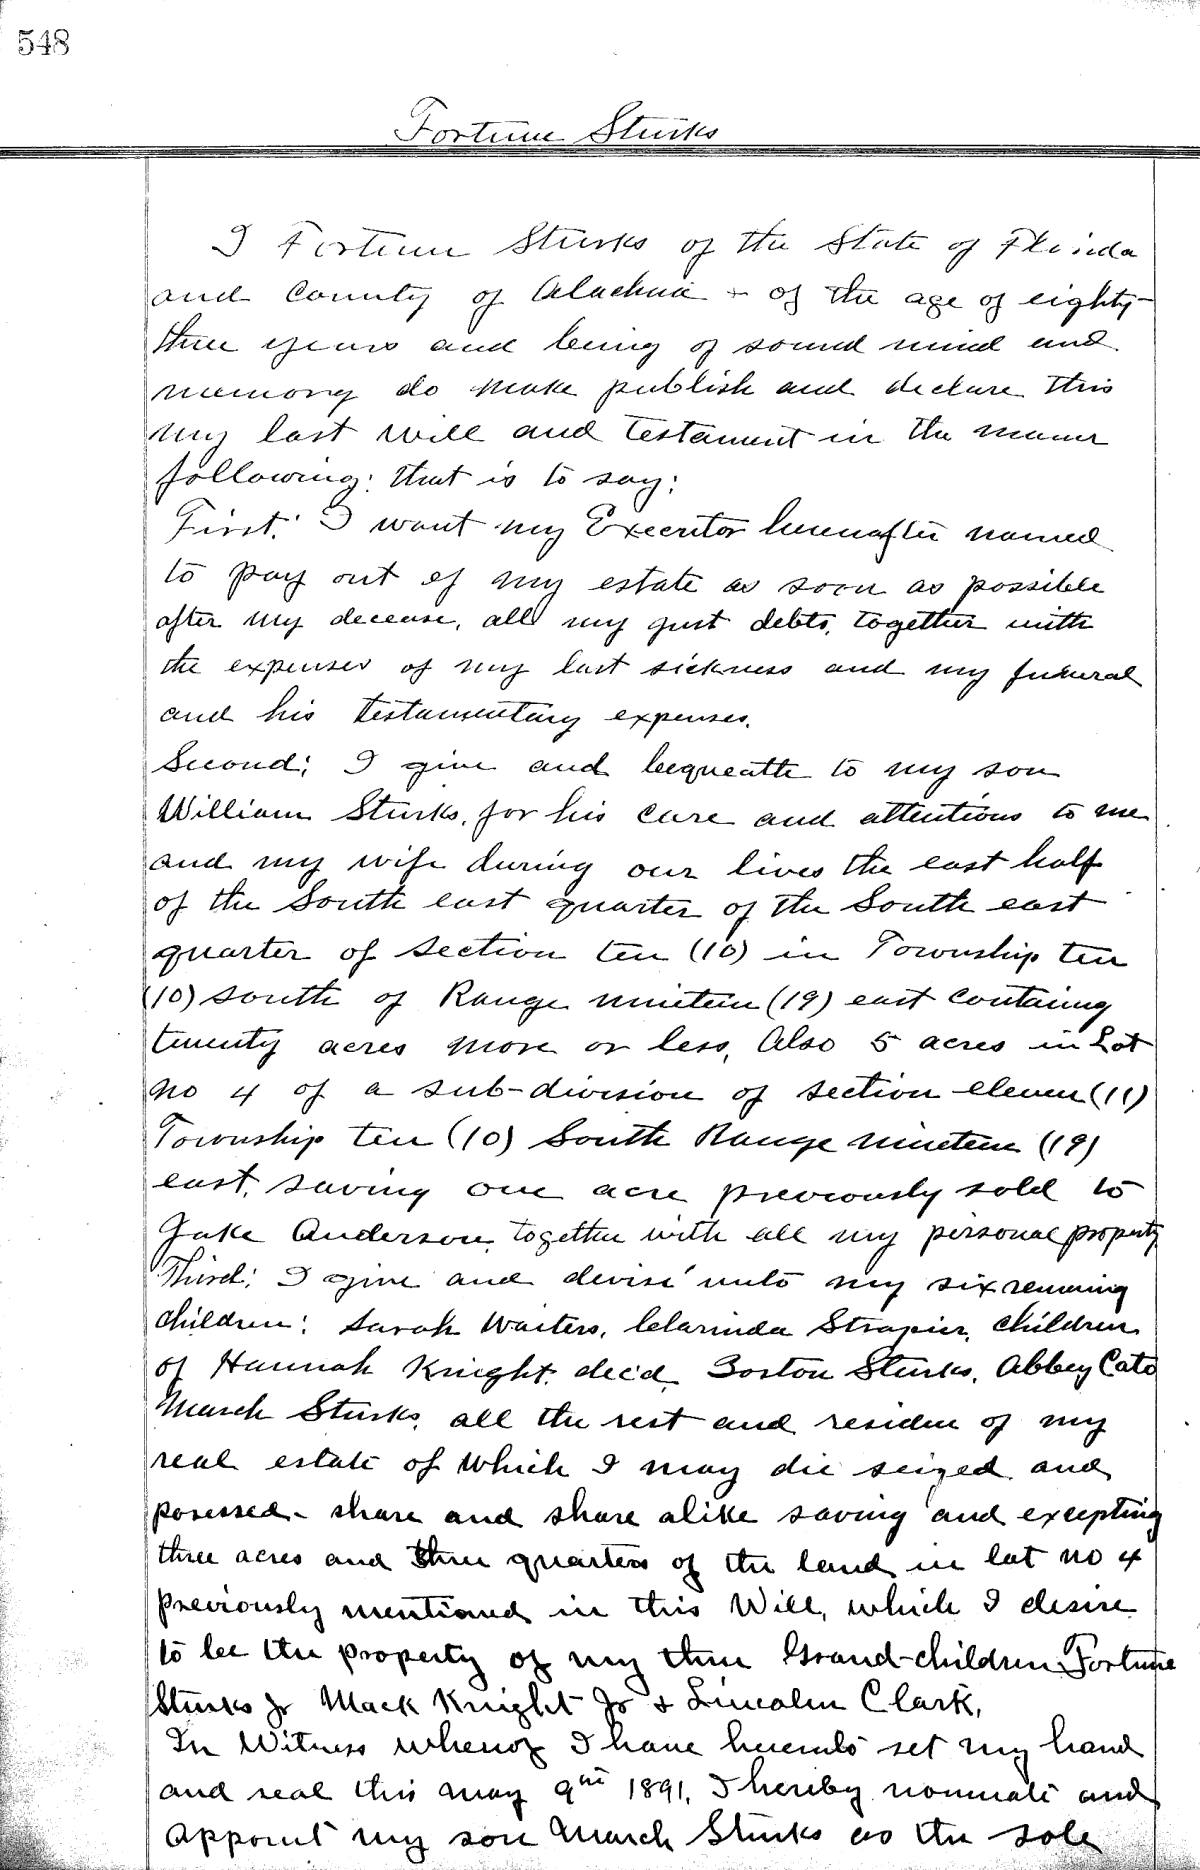 548
Fortune Sturks
I Fortune Sturks of the State of Florida
and County of Alachua + of the age of eighty-
three years and being of sound mind and
memory do make publish and declare this
my last will and testament in the manner
following: that is to say:
First: I want my Executor hereafter named
to pay out of my estate as soon as possible
after my decease, all my just debts, together with
the expenses of my last sickness and my funeral
and his testamentary expenses.
Second; I give and bequeathe to my son
William Sturks, for his care and attentions to me
and my wife during our lives the east half
of the South east quarter of the South east
quarter of section ten (10) in Township ten
(10) south of Range nineteen (19) east containg
twenty acres more or less, Also 5 acres in Lot
no 4 of a sub-division of section eleven (11)
Township ten (10) South Range nineteen (19)
east, saving one acre previously sold to
Jake Anderson, together with all my personal property
Third; I give and devise unto my six remaining
children: Sarah Waiters, Clarinda Strapier, children
of Hannah Knight, dec'd, Boston Sturks, Abbey Cato
March Sturks, all the rest and residue of my
real estate of which I may die seized and
posessed - share and share alike saving and excepting
three acres and three quarters of the land in lot no 4
previously mentioned in this Will, which I desire
to be the property of my three Grand-children Fortune
Sturks Jr Mack Knight Jr + Lincoln Clark,
In Witness whereof I have hereunto set my hand
and seal this may 9th 1891, I hereby nominate and
appoint my son March Sturks as the sole